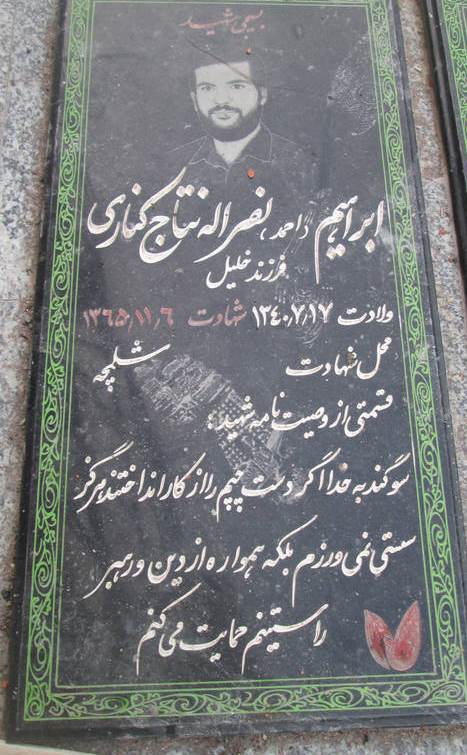 بسیجی شهید
ابراهیم (احمد) نصراله نتاج کناری
فرزند خلیل
ولادت ۱۳۴۰٫۷٫۱۷ شهادت ۱۳۶۵٫۱۱٫۶
محل شهادت شلمچه
قسمتی از وصیت نامه شهید:
سوگند به خدا اگر دست چپم را از کار انداختند هرگز
سستی نمی ورزم بلکه همواره از دین و رهبر
راستینم حمایت می کنم